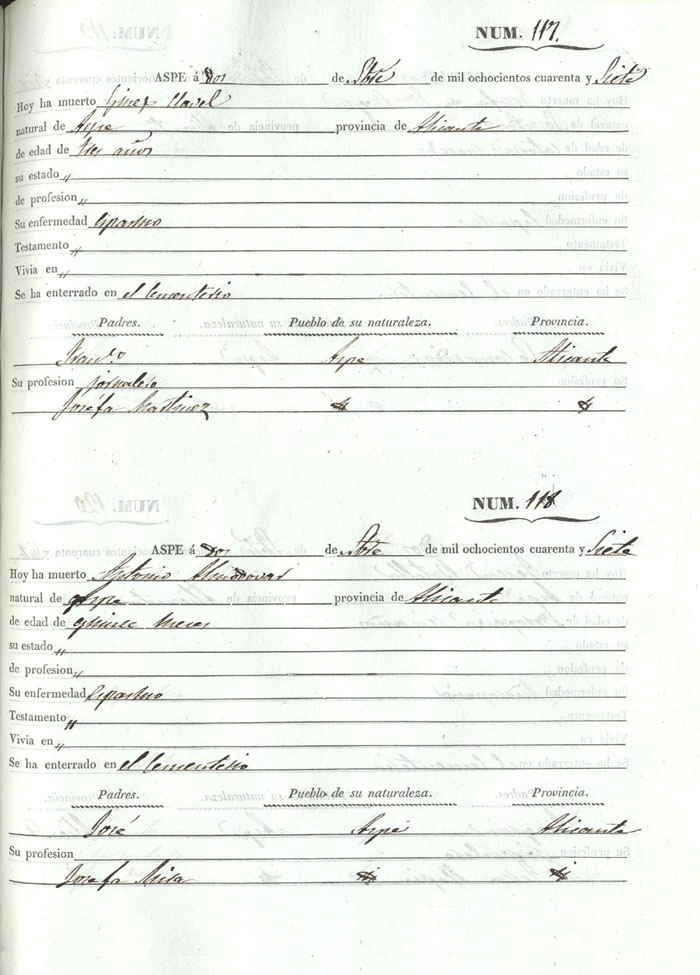 NUM. 117.
ASPE á dos de Sbre de mil ochocientos cuarenta y Siete
Hoy ha muerto Gines Clavel
natural de Aspe provincia de Alicante
de edad de tres años
su estado „
de profesion „
Su enfermedad Espasmo
Testamento „
Vivia en „
Se ha enterrado en el Cementerio
Padres. Pueblo de su naturaleza. Provincia.
Franco Aspe Alicante
Su profesion jornalero
Josefa Martinez
NUM. 118
ASPE á dos de Sbre de mil ochocientos cuarenta y Siete
Hoy ha muerto Antonio Almodovar
natural de Aspe provincia de Alicante
de edad de quince meses
su estado „
de profesion „
Su enfermedad Espasmo
Testamento „
Vivia en „
Se ha enterrado en el Cementerio
Padres. Pueblo de su naturaleza. Provincia.
José Aspe Alicante
Su profesion
Josefa Mira